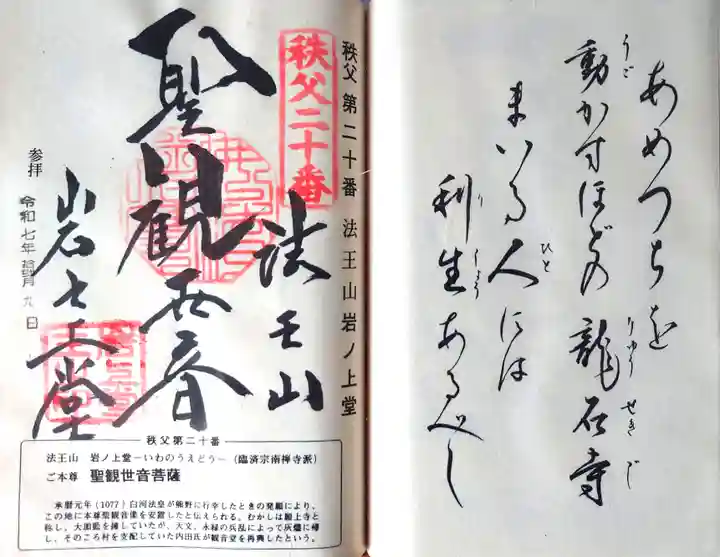 あめつちを
うご
動かすほどの龍石寺
りゅうせきじ
まいる人には
ひと
利生あるべし
りしょう
秩父第二十番 法王山岩ノ上堂
秩父二十番
法王山
聖観世音
岩之上堂
参拝 令和七年 月九日
秩父第二十番
法王山 岩ノ上堂−いわのうえどう−(臨済宗南禅寺派)
ご本尊 聖観世音菩薩
承暦元年(1077)白河法皇が熊野に行幸したときの発願により、
この地に本尊聖観音像を安置したと伝えられる。むかしは 上寺と
称し、大伽藍を擁していたが、天文、永禄の兵乱によって灰燼に帰
し、そのころ村を支配していた内田氏が観音堂を再興したという。